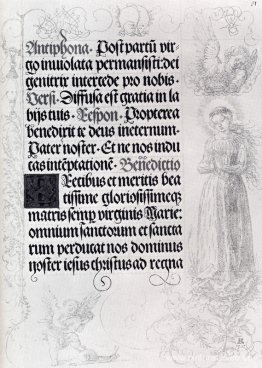 31
Antiphona. Post partū vir
go inuiolata permansisti: dei
genitrix intercede pro nobis.
Versi. Diffusa est gratia in la
bijs tuis. Respon. Propterea
benedixit te deus ineternum.
Pater noster. Et ne nos indu
cas intēptationē. Benedictio
Precibus et meritis bea
tissime gloriosissimeqꝫ
matris semꝑ virginis Marie:
omnium sanctorum et sancta
rum perducat nos dominus
noster iesus christus ad regna